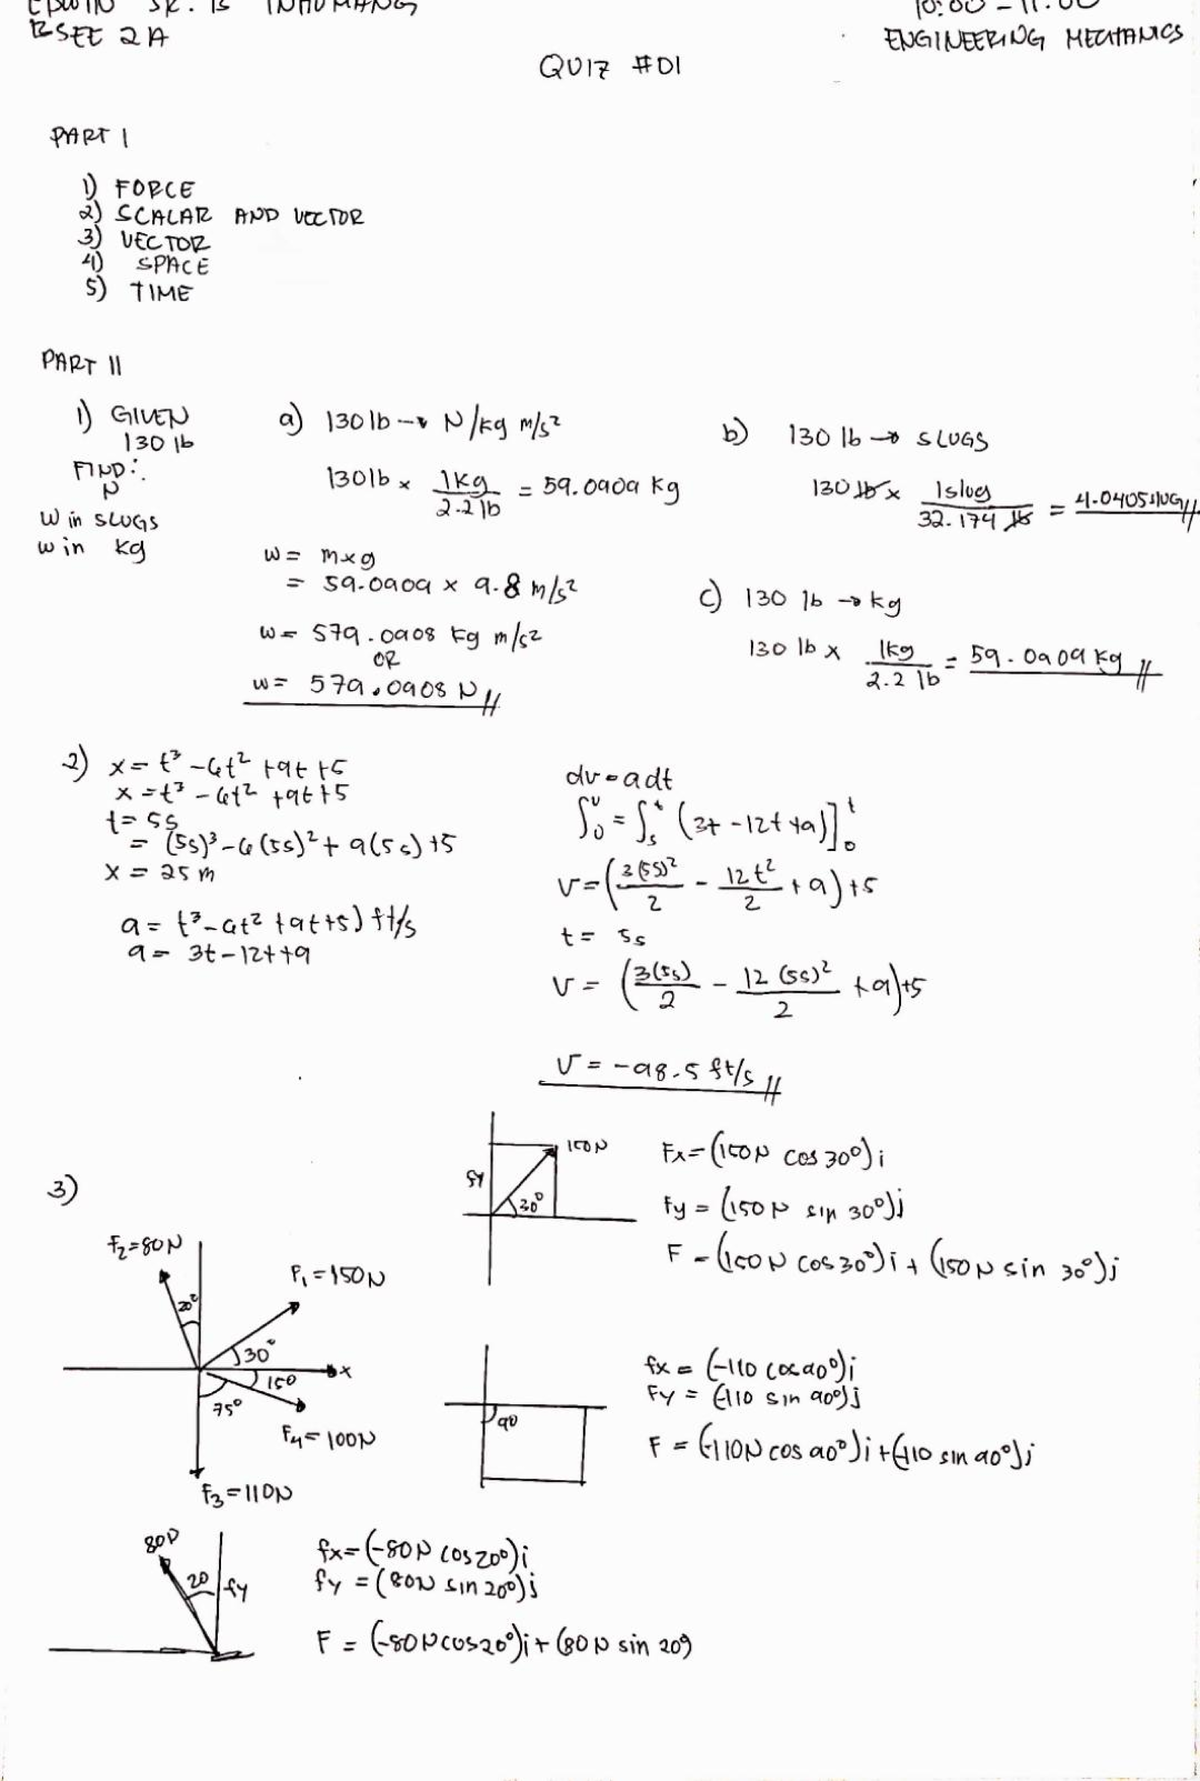 BSEE 2A
10:00 - 11:00
ENGINEERING MECHANICS
QUIZ #01
PART I
1) FORCE
2) SCALAR AND VECTOR
3) VECTOR
4) SPACE
5) TIME
PART II
1) GIVEN
130 lb
FIND:
N
W in SLUGS
w in kg
a) 130 lb → N/kg m/s²
130lb × 1kg / 2.2 lb = 59.0909 kg
w = m×g
= 59.0909 × 9.8 m/s²
w = 579.0908 kg m/s²
OR
w = 579.0908 N //
b) 130 lb → SLUGS
130 lb × 1slug / 32.174 lb = 4.0405 slug //
c) 130 lb → kg
130 lb × 1kg / 2.2 lb = 59.0909 kg //
2) x = t³ - 6t² + 9t + 5
x = t³ - 6t² + 9t + 5
t = 5s
= (5s)³ - 6(5s)² + 9(5s) + 5
x = 25 m
a = t³ - 6t² + 9t + 5) ft/s
a = 3t - 12t + 9
dv = a dt
∫₀ᵛ = ∫₅ᵗ (3t - 12t + 9)]₀ᵗ
V = (3(5s)² / 2 - 12t² / 2 + 9) + 5
t = 5s
V = (3(5s) / 2 - 12(5s)² / 2 + 9) + 5
V = -98.5 ft/s //
3)
F₂ = 80N
F₁ = 150N
20°
30°
x
15°
75°
F₄ = 100N
F₃ = 110N
150N
fy
30°
Fx = (150N cos 30°)i
Fy = (150N sin 30°)j
F = (150N cos 30°)i + (150N sin 30°)j
90
fx = (-110 cos 90°)i
Fy = (-110 sin 90°)j
F = (-110N cos 90°)i + (-110 sin 90°)j
80N
20
fy
fx = (-80N cos 20°)i
fy = (80N sin 20°)j
F = (-80N cos 20°)i + (80N sin 20°)